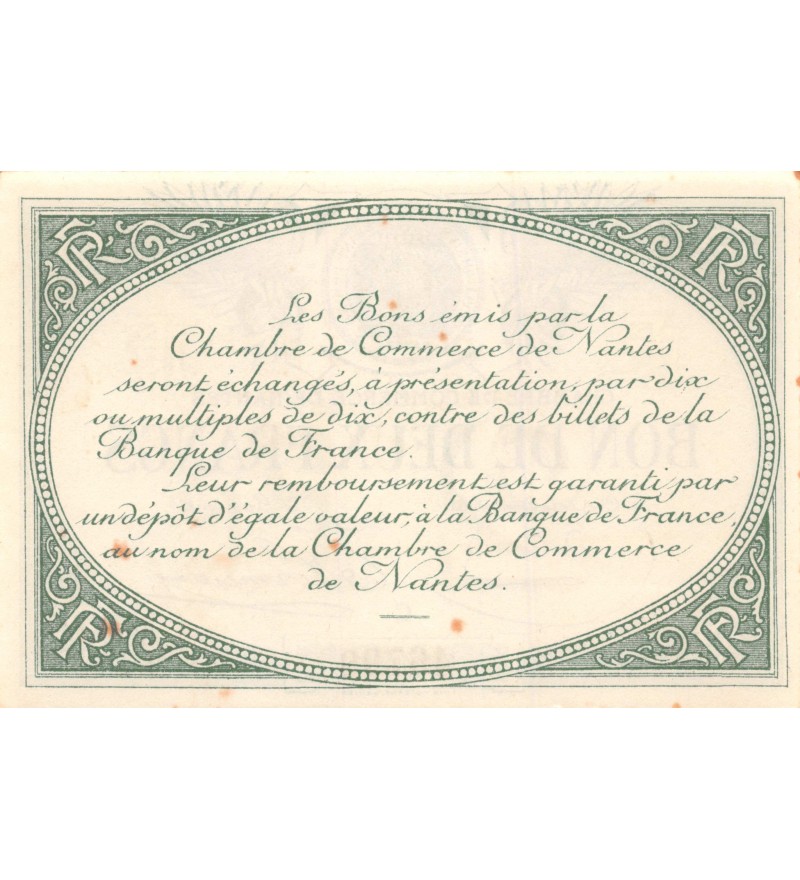 RF RF
Les Bons émis par la
Chambre de Commerce de Nantes
seront échangés, à présentation, par dix
ou multiples de dix, contre des billets de la
Banque de France.
Leur remboursement est garanti par
un dépôt d'égale valeur, à la Banque de France,
au nom de la Chambre de Commerce
de Nantes.
RF RF